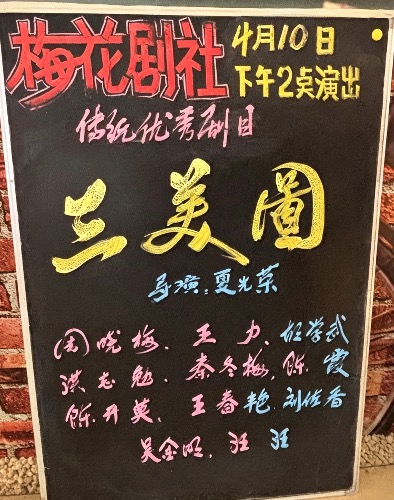 梅花剧社 4月10日
下午2点演出
传统优秀剧目
三美圖
导演:夏光荣
周晓梅、王力、胡学武
洪志勉、秦冬梅、陈霞
陈开英、王春艳、刘佐香
吴金明、汪汪